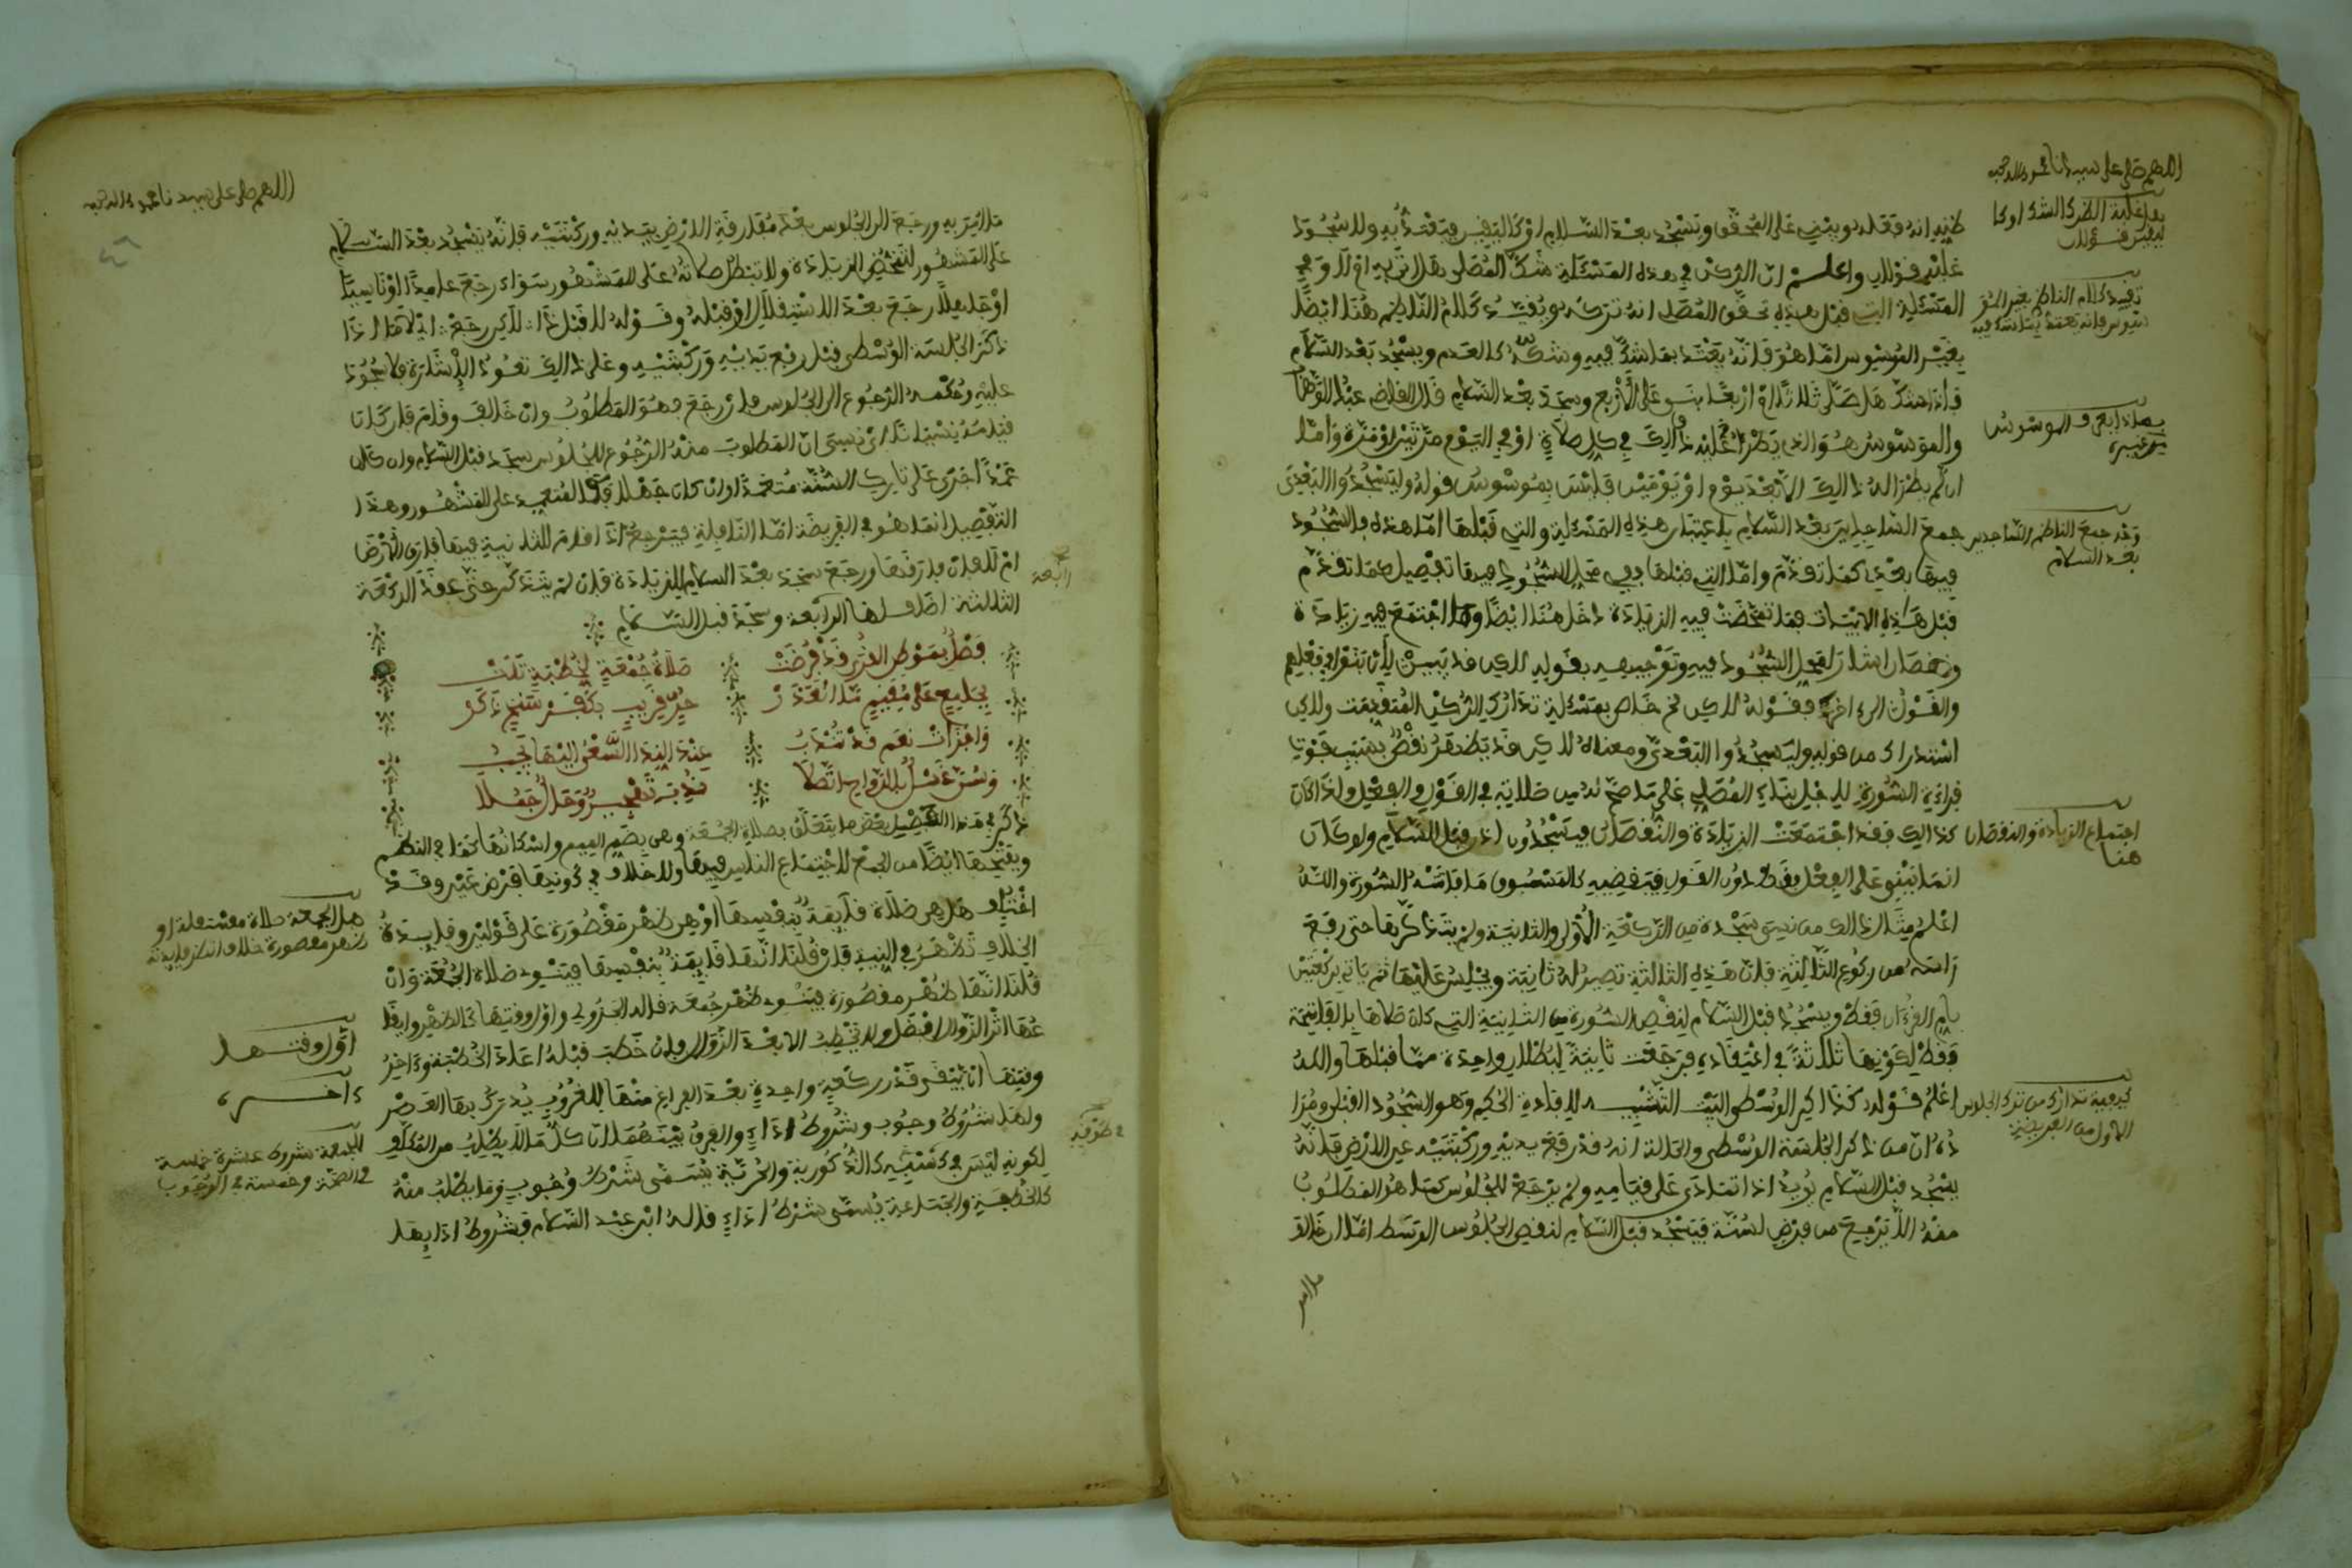 اللهم صل على سيدنا محمد وءاله وصحبه
ظنه انه فعله ويبني على المحقق ويسجد بعد السلام او كاليقين فيعتد به ولا سجود
عليه قولان واعلم ان الركن في هذه المسئلة شك المصلي هل اتى به ام لا وفي
المسئلة التي قبل هذه تحقق المصلي انه تركه ويقيد كلام الناظم هنا ايضا
بغير الموسوس اما هو فانه يعتد بما شك فيه وشكه كالعدم ويسجد بعد السلام
فاذا شك هل صلى ثلاثا او اربعا بنى على الاربع وسجد بعد السلام قال القاضي عبد الوهاب
والموسوس هو الذي يطرأ عليه ذالك في كل صلاة او في اليوم مرتين او مرة واما
ان لم يطرأ له ذالك الا بعد يوم او يومين فليس بموسوس قوله وليسجدوا البعدي
جمع الساجدين بعد السلام باعتبار هذه المسئلة والتي قبلها اما هذه فالسجود
فيها بعدي كما تقدم واما التي قبلها ففي محل السجود فيها تفصيل كما تقدم
قبل هذه الابيات فما تمحضت فيه الزيادة دخل هنا ايضا وما اجتمع فيه زيادة
ونقصان اشار لمحل السجود فيه وتوجيهه بقوله لاكن قد يبين لان بنوا في فعلهم
والقول الى اخره فقوله لاكن خاص بمسئلة تدارك الركن المتقدمت ولاكن
استدراك من قوله وليسجدوا البعدي ومعناه لاكن قد يظهر نقص بسبب فوت
قراءة السورة لاجل بناء المصلي على ما صح له من صلاته في الفول والفعل واذا كان
كذالك فقد اجتمعت الزيادة والنقصان فيسجدون اذن قبل السلام ولو كان
انما يبني على الفعل فقط دون القول فيقضيه كالمسبوق ما فاتته السورة والله
اعلم مثال ذالك من نسي سجدة من الركعة الاولى والثانية ولم يتذكرها حتى رفع
راسه من ركوع الثالثة فان هذه الثالثة تصير له ثانية ويجلس عليها ثم ياتي بركعتين
بام القرءان فقط ويسجد قبل السلام لنقص السورة من الثانية التي كان صلاها بالفاتحة
فقط لكونها ثالثة في اعتقاده فرجعت ثانية لبطلان واحدة مما قبلها والله
اعلم قوله كذاكر الوسطى البيت التشبيه لافادة الحكم وهو السجود القبلي ومرا
ده ان من ذكر الجلسة الوسطى والحالة انه قد رفع يديه وركبتيه عن الارض فانه
يسجد قبل السلام يريد اذا تمادى على قيامه ولم يرجع للجلوس كما هو المطلوب
منه الا يرجع من فرض لسنة فيسجد قبل السلام لنقص الجلوس الوسط اما ان خالف
ما امر
بعد السلام
اجتماع الزيادة والنقصان
هنا
اللهم صل على سيدنا محمد وءاله وصحبه
ما امر به ورجع الى الجلوس بعد مفارقة الارض بيديه وركبتيه فانه يسجد بعد السلام
على المشهور لتمحض الزيادة ولا تبطل صلاته على المشهور سواء رجع عامدا او ناسيا
او جاهلا رجع بعد الاستقلال او قبله وقوله لا قبل ذا لاكن رجع اي لا ما اذا
ذكر الجلسة الوسطى قبل رفع يديه وركبتيه وعلى ذالك تعود الاشارة فلا سجود
عليه وحكمه الرجوع الى الجلوس فان رجع فهو المطلوب وان خالف وقام فان كان
قيامه نسيانا اي نسي ان المطلوب منه الرجوع للجلوس سجد قبل السلام وان كان
عمدا اجرى على تارك السنة متعمدا وان كان جهلا فكالمتعمد على المشهور وهذا
التفصيل انما هو في الفريضة اما النافلة فيرجع اذا قام للثانية فيها فارق الارض
ام لا فان فارقها ورجع سجد بعد السلام للزيادة فان لم يتذكر حتى عقد الركعة
الثالثة اضاف لها الرابعة وسجد قبل السلام
رابعة
فصل بموطن القرى قد فرضت صلاة جمعة لخطبة تلت
بجامع على مقيم ما انعذر حر قريب بكفرسخ ذكر
واجزات نعم قد تندب عند الندا السعي اليها يجب
وسن غسل بالرواح اتصلا ندب تهجير وحال جملا
ذكر في هذا الفصل بعض ما يتعلق بصلاة الجمعة وهي بضم الميم واسكانها كما في النظم
وبفتحها ايضا من الجمع لاجتماع الناس فيها ولا خلاف في كونها فرض عين وقد
اختلف هل هي صلاة قائمة بنفسها او هي ظهر مقصورة على قولين وفائدة
الخلاف تظهر في النية فان قلنا انها قائمة بنفسها فينوي صلاة الجمعة وان
قلنا انها ظهر مقصورة فينوي ظهر جمعة قاله الجزولي واول وقتها كالظهر وايقا
عها اثر الزوال افضل ولا يخطب الا بعد الزوال فان خطب قبله اعاد الخطبة وءاخر
وقتها ان يبقى قدر ركعة واحدة بعد الفراغ منها للغروب يدرك بها العصر
ولها شروط وجوب وشروط اداء والفرق بينهما ان كل ما لا يطلب من المكلف
لكونه ليس في كسبه كالذكورية والحرية يسمى شرط وجوب وما يطلب منه
كالخطبة والجماعة يسمى شرط اداء قاله ابن عبد السلام فشروط ادايها
هل الجمعة صلاة مستقلة او
ظهر مقصورة خلاف انظر فايدته
اول وقتها
وءاخره
للجمعة شروط عشرة خمسة
في الصحة وخمسة في الوجوب